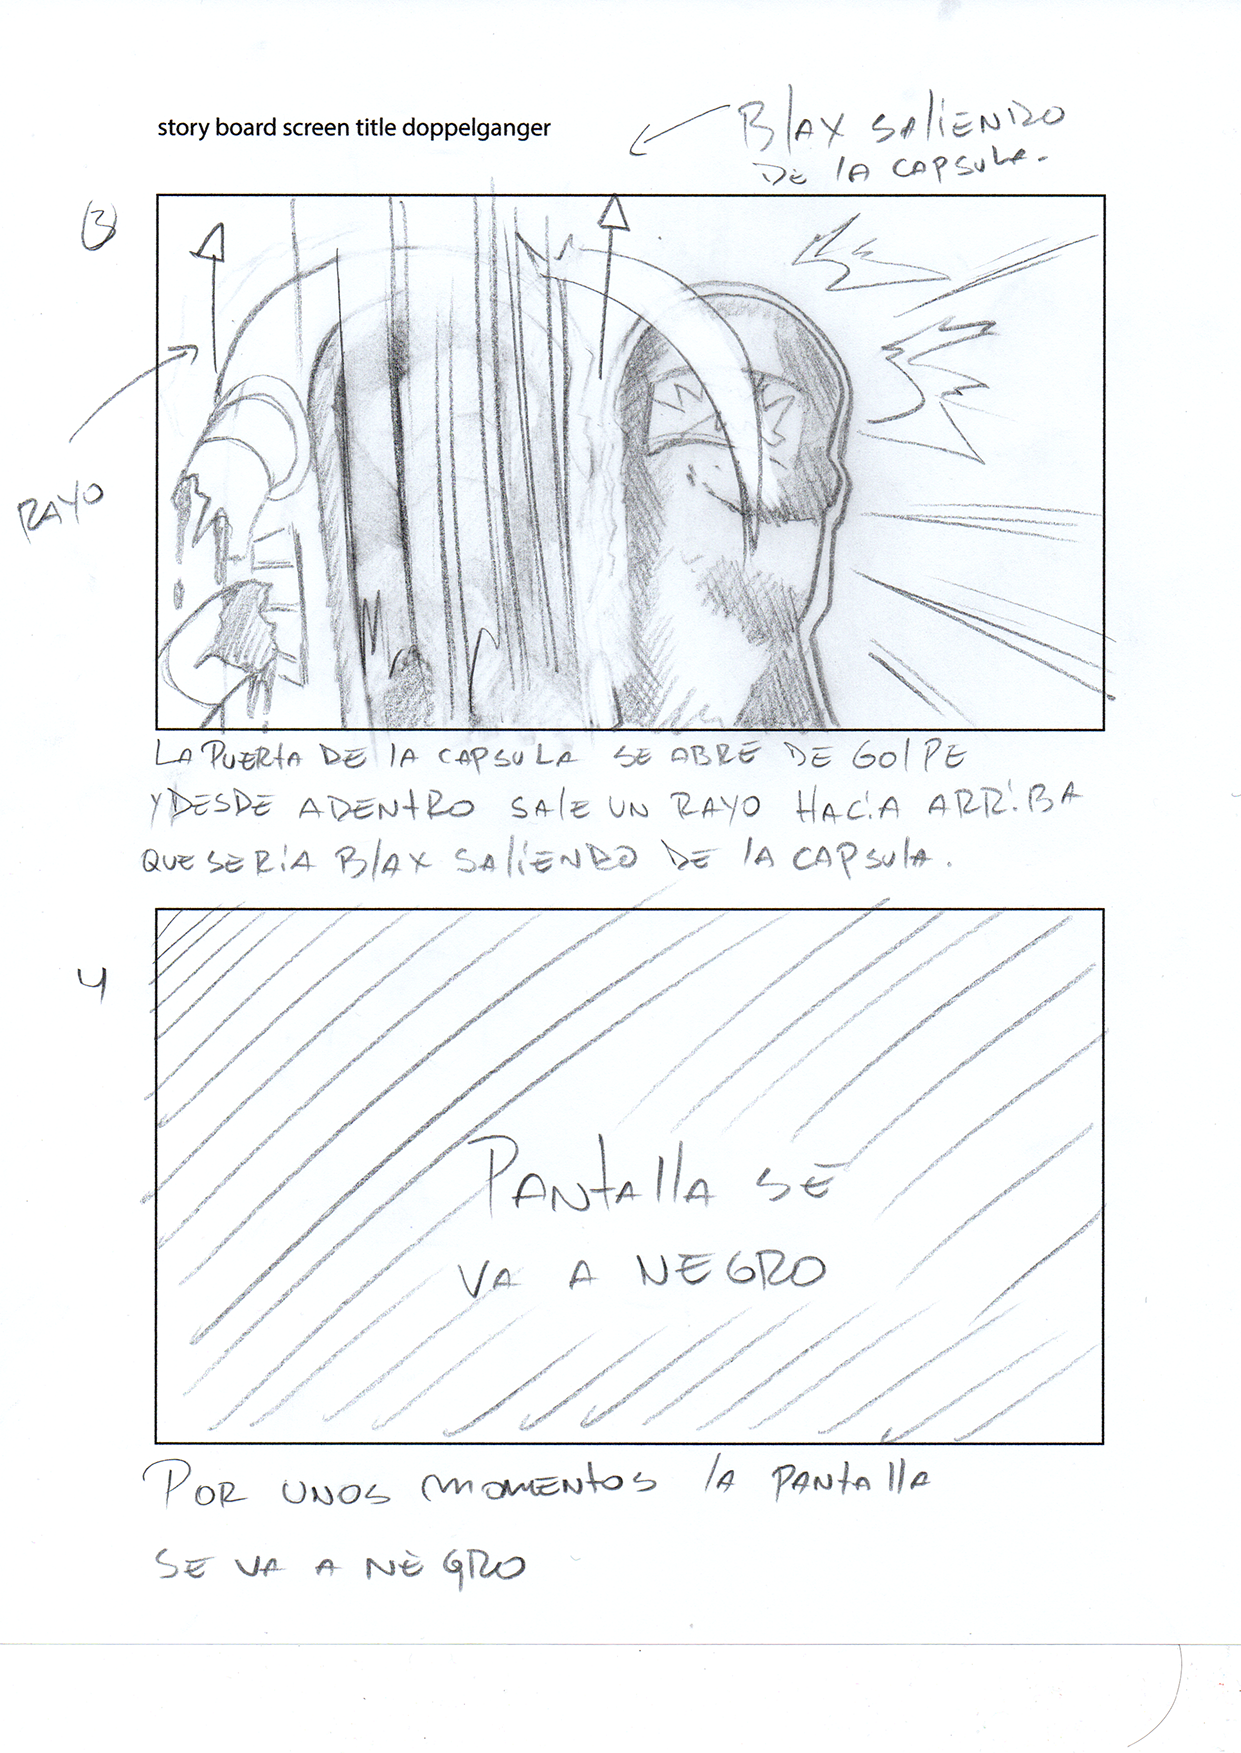 story board screen title doppelganger
Blax saliendo
de la capsula.
3
RAYO
LA PUERTA DE LA CAPSULA SE ABRE DE GOLPE
Y DESDE ADENTRO SALE UN RAYO HACIA ARRIBA
QUE SERIA BLAX SALIENDO DE LA CAPSULA.
4
PANTALLA SE
VA A NEGRO
POR UNOS MOMENTOS LA PANTALLA
SE VA A NEGRO